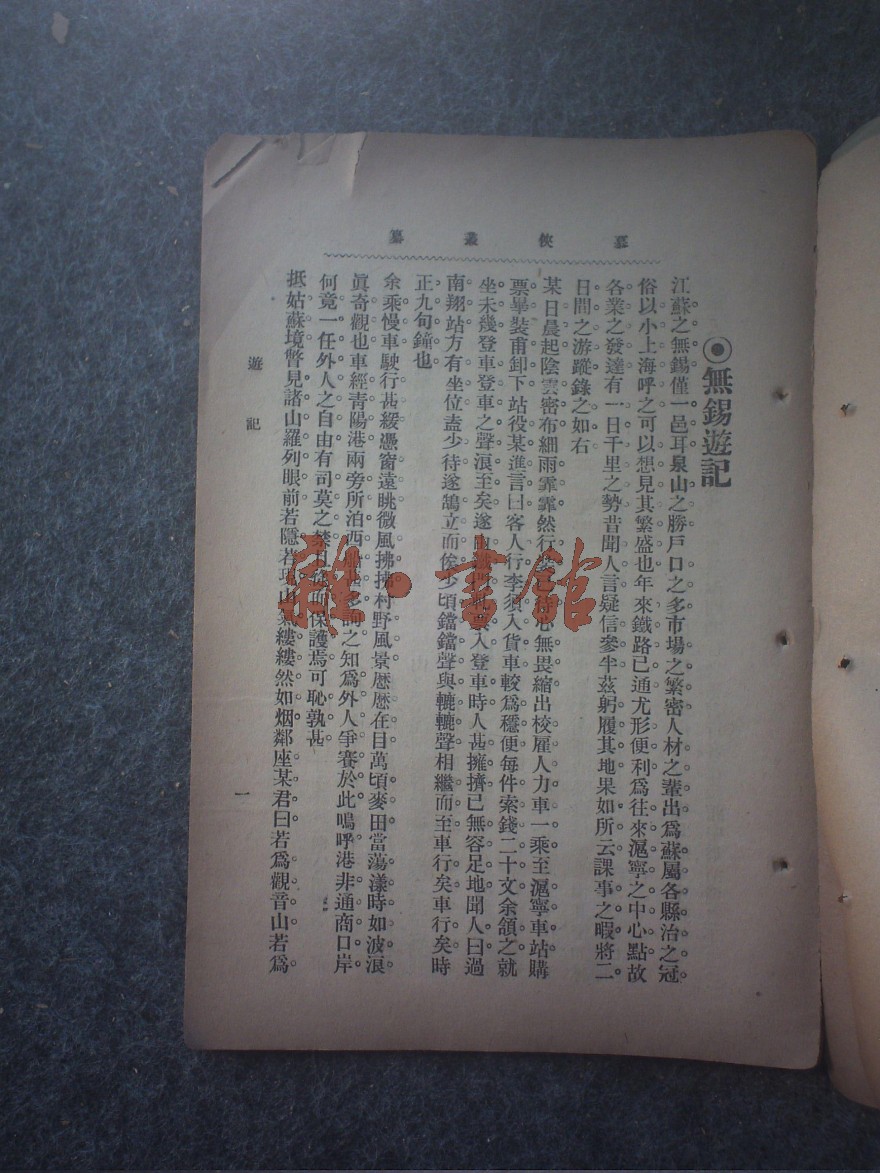 慕俠叢纂
◉無錫遊記
江蘇之無錫僅一邑耳泉山之勝戶口之多市場之繁密人材之輩出爲蘇屬各縣治之冠。
俗以小上海呼之可以想見其繁盛也年來鐵路已通尤形便利爲往來滬寧之中心點故
各業之發達有一日千里之勢昔聞人言疑信參半茲躬履其地果如所云課事之暇將二
日間之游蹤錄之如右
某日晨起陰雲密布細雨霏霏然行裝已待心無畏縮出校雇人力車一乘至滬寧車站購
票畢裝甫卸下站役某進言曰客人行李須入貨車較爲穩便每件索錢二十文余頷之就
坐未幾登車登車之聲浪至矣遂入登車時人甚擁擠已無容足地聞人曰過
南翔站方有坐位盍少待遂鵠立而俟少頃鐺鐺聲與轆轆聲相繼而至車行矣車行矣時
正九句鐘也
余乘慢車駛行甚緩憑窗遠眺微風拂拂村野風景歷歷在目萬頃麥田當蕩漾時如波浪。
眞奇觀也車經青陽港兩旁所泊西多詢之知爲外人爭賽於此嗚呼港非通商口岸
何竟一任外人之自由有司莫之禁且從而保護焉可恥孰甚
抵姑蘇境瞥見諸山羅列眼前若隱若現山氣縷縷然如烟鄰座某君曰若爲觀音山若爲
遊記
一
雜·書館